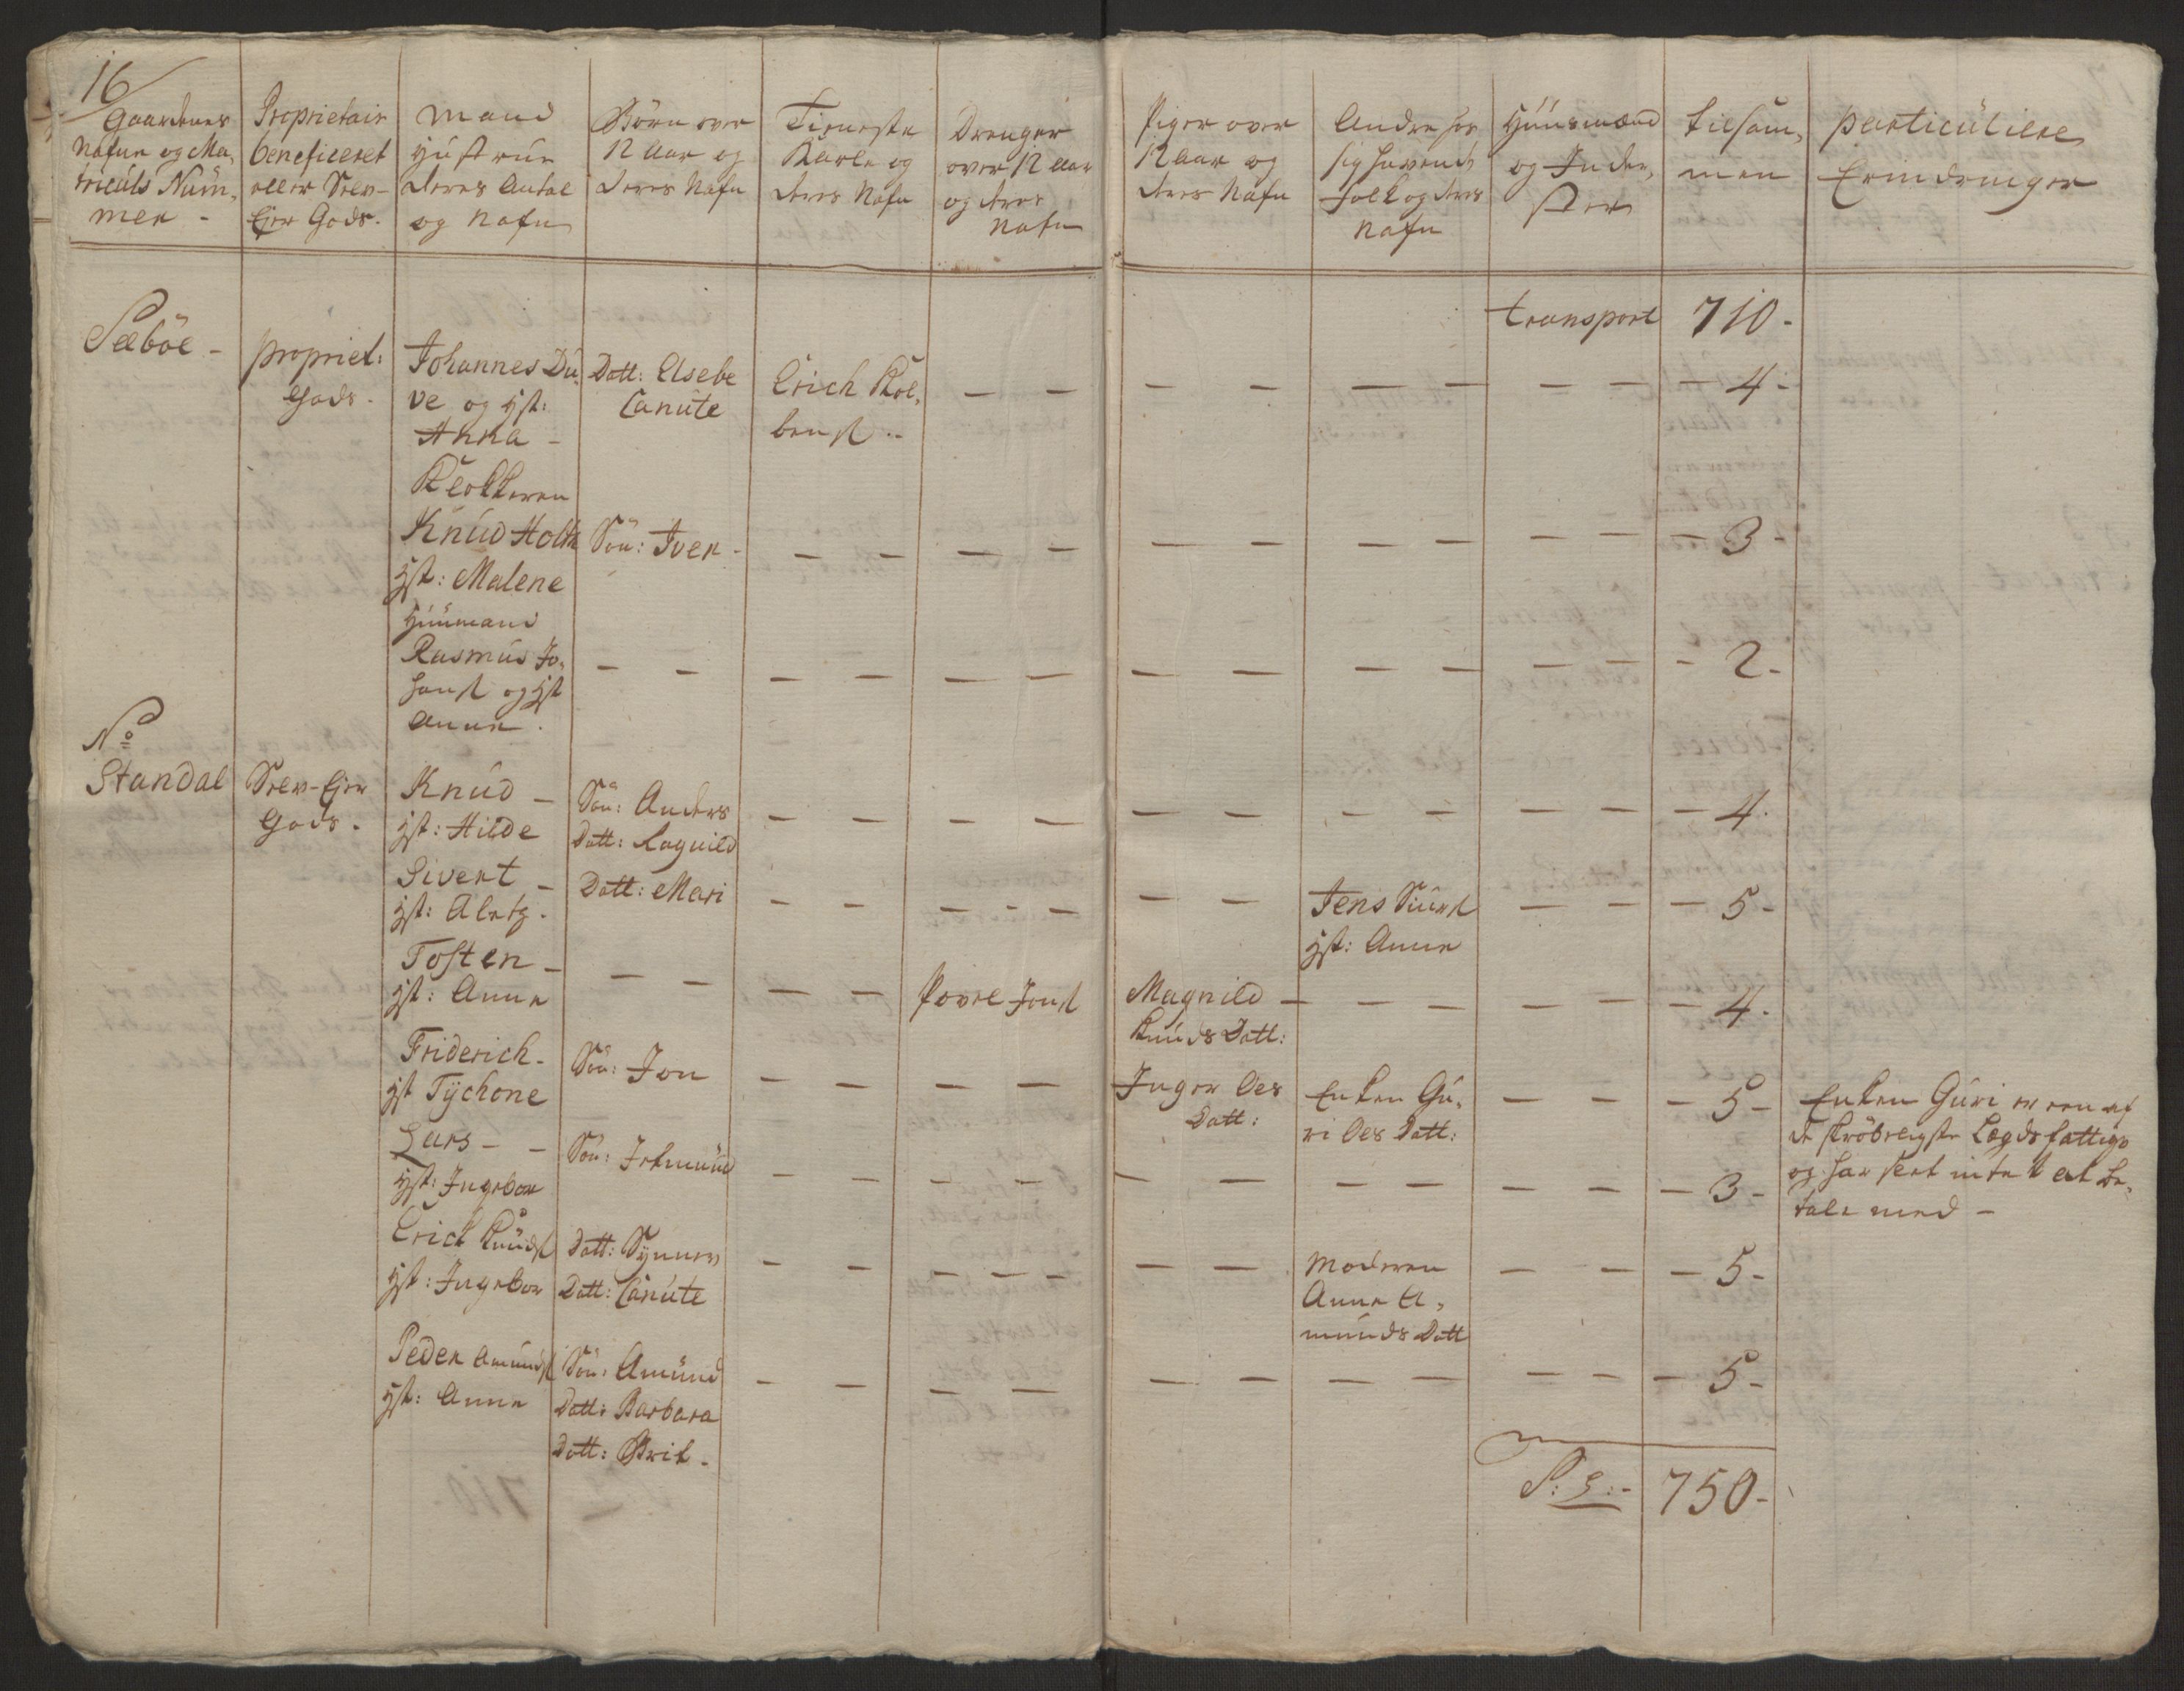 16
Gaardenes
Nafne og Ma,
triculs Num,
mer -
Proprietair
beneficeret
eller Selv-
Ejer Gods.
Mand
Hustrue
deres Antal
og Nafn
Börn over
12 Aar og
deres Nafn
Tieneste
Karle og
deres Nafn
Drenger
over 12 Aar
og deres
Nafn
Piger over
12 Aar og
deres Nafn
Andre hos
sig havende
folk og deres
Nafn
Huusmænd
og Inder,
ster
tilsam,
men
particuliere
Erindringer
transport 710-
Sæböe -
propriet:
Gods.
Johannes Du,
ve og Hst:
Anna -
Datt: Elsebe
Canute
Erich Kol,
bens.
— — — — — — — — - 4 -
Klokkeren
Knud Holtk
Hst: Malene
Sön: Iver -
— — — — — — — — — — - 3 -
Huusmand
Rasmus Jo,
hans og Hst
Anne.
— — — — — — — — — — — — - 2 -
No
Standal
Selv-Ejer
Gods.
Knud -
Hst: Hilde
Sön: Anders
Datt: Ragnild
— — — — — — — — — — - 4.
Sivert -
Hst: Aletz.
Datt: Mari
— — — - — — —
Jens Siurs
Hst: Anne
— — - 5 -
Tosten -
Hst: Anne
— — — —
Povel Jons
Magnild -
Knuds Datt:
— — — — - 4.
Friderich.
Hst Tychone
Sön: Jon
— — — —
Inger Oles
Datt:
Enken Gu,
ri Oles Datt:
— — - 5 -
Enken Guri er een af
de skröbeligste Lægds fattige
og har slet intet at be,
tale med -
Lars - -
Hst: Ingebor
Sön: Jetmund
— — — — — — — — — — - 3 -
Erick Knuds
Hst: Ingebor
Datt: Synnev
Datt: Canute
— — — - — — —
Moderen
Anne A,
munds Datt
— — - 5 -
Peder Amunds
Hst: Anne
Sön: Amund
Datt: Barbara
Datt: Brit -
— — — — — — — — — — - 5 -
S: S:- 750-